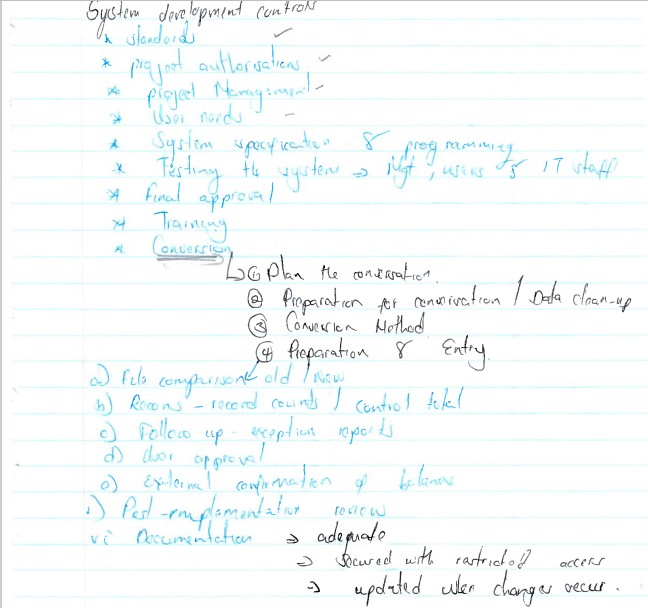 System development controls
* standards ✓
* project authorisations ✓
* project Management -
* User needs -
* System specification & programming
* Testing the system → Mgt, users & IT staff
* final approval
* Training
* Conversion
↳ ① Plan the conversation.
② Preparation for conversation / Data clean-up
③ Conversion Method
④ Preparation & Entry.
a) File comparison old / New
b) Recons - record counts / control total
c) Follow up - exception reports
d) User approval
e) External confirmation of balances
) Post-implementation review
vi Documentation → adequate
→ secured with restricted access
→ updated when changes occur.